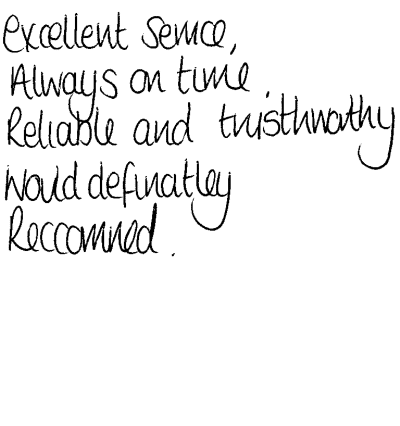 Excellent Service,
Always on time.
Reliable and trusthwothy
Would definatley
Reccomned.